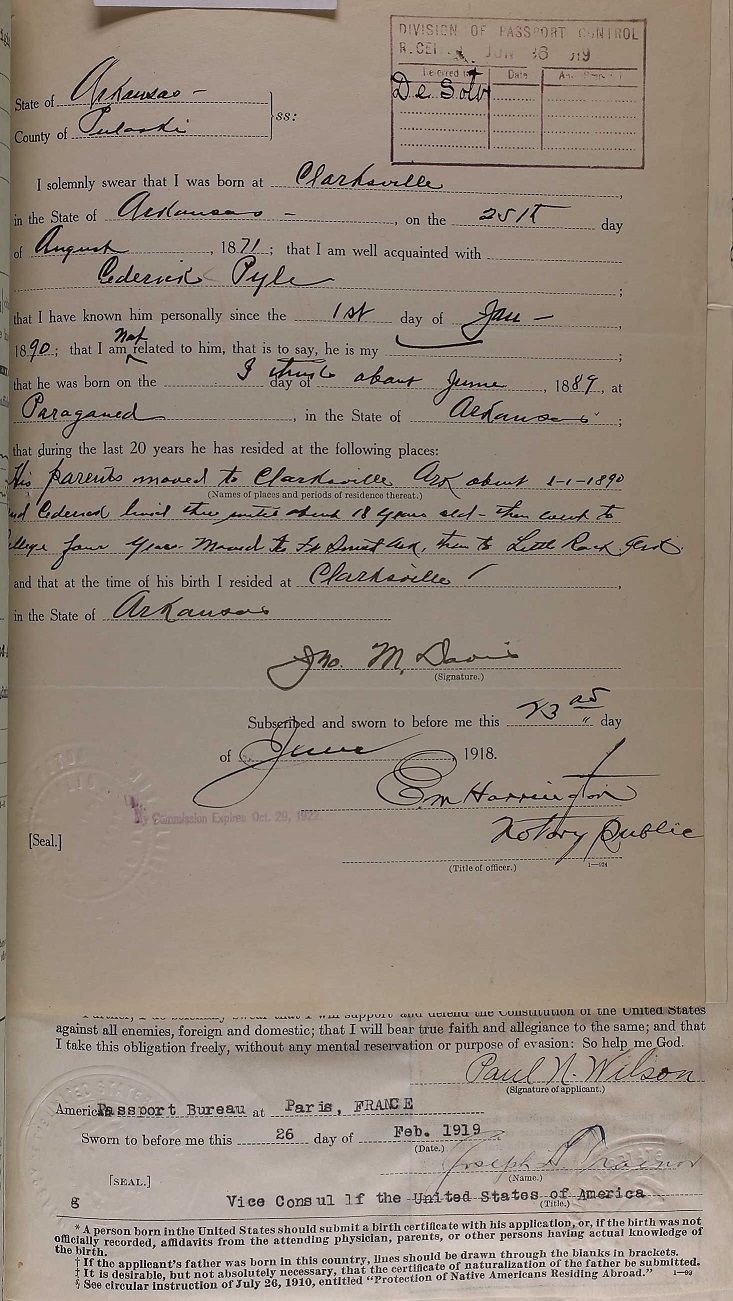 DIVISION OF PASSPORT CONTROL
JUN 26
Referred to Date
De Soto
State of Arkansas -
County of Pulaski
ss:
I solemnly swear that I was born at Clarksville,
in the State of Arkansas -, on the 25th day
of August, 1871; that I am well acquainted with
Cederick Pyle;
that I have known him personally since the 1st day of Jan -,
1890; that I am Not related to him, that is to say, he is my ;
that he was born on the I think day of about June, 1889, at
Paragaued, in the State of Arkansas;
that during the last 20 years he has resided at the following places:
His parents moved to Clarksville Ark about 1-1-1890
(Names of places and periods of residence thereat.)
Cederick lived about 18 years old - then went to
four years. Moved to Ft Smith Ark, then to Little Rock Ark.
and that at the time of his birth I resided at Clarksville,
in the State of Arkansas
Jno. M. Davis
(Signature.)
Subscribed and sworn to before me this 23 day
of June, 1918.
Em Harrington
My Commission Expires Oct. 28, 1922
Notary Public
[Seal.]
(Title of officer.)
Further, I do solemnly swear that I will support and defend the Constitution of the United States
against all enemies, foreign and domestic; that I will bear true faith and allegiance to the same; and that
I take this obligation freely, without any mental reservation or purpose of evasion: So help me God.
Paul N. Wilson
(Signature of applicant.)
America Passport Bureau at Paris, FRANCE
Sworn to before me this 26 day of Feb. 1919
(Date.)
Joseph
(Name.)
[SEAL.]
g Vice Consul lf the United States of America
(Title.)
* A person born in the United States should submit a birth certificate with his application, or, if the birth was not
officially recorded, affidavits from the attending physician, parents, or other persons having actual knowledge of
the birth.
† If the applicant's father was born in this country, lines should be drawn through the blanks in brackets.
‡ It is desirable, but not absolutely necessary, that the certificate of naturalization of the father be submitted.
§ See circular instruction of July 26, 1910, entitled "Protection of Native Americans Residing Abroad."